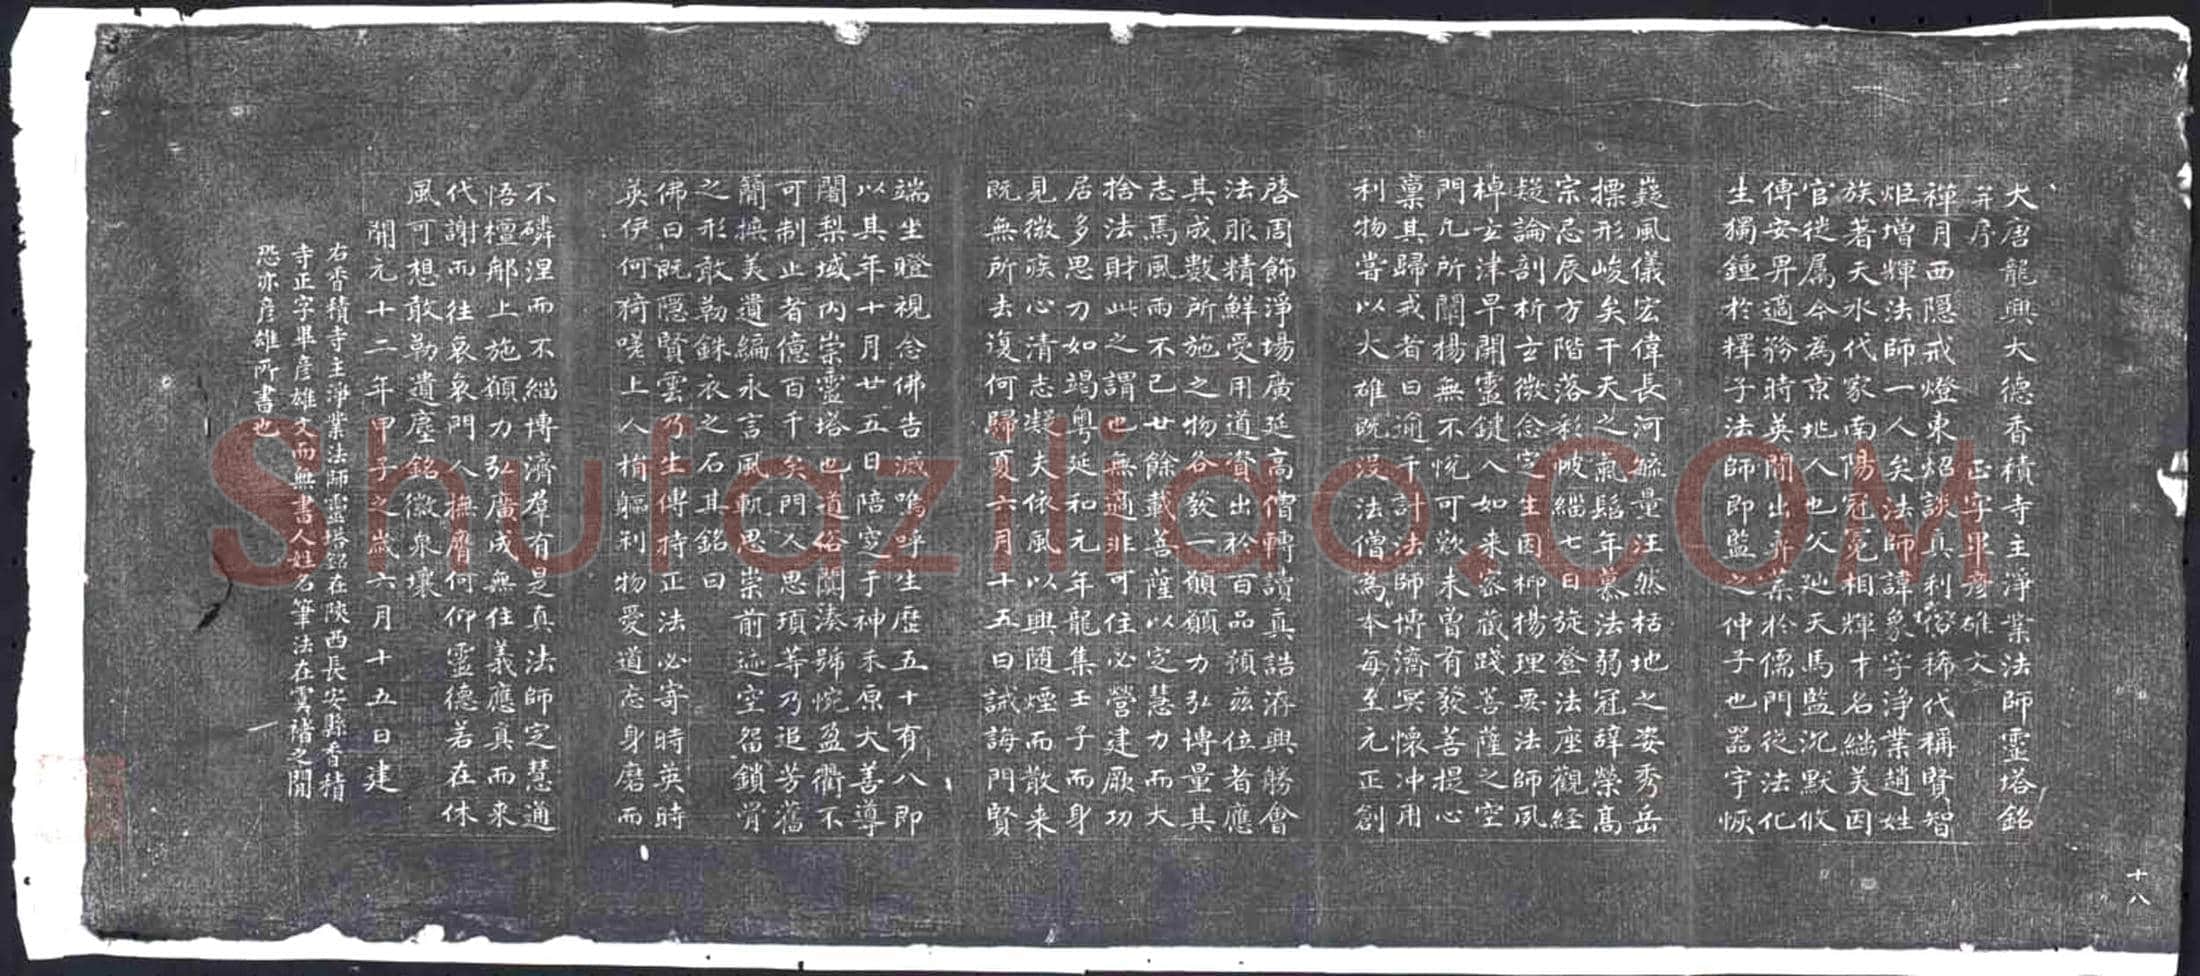 大唐龍興大德香積寺主淨業法師靈塔銘
并序 正字畢彥雄文
禪月西隱戒燈東炤談真利俗稀代稱賢智
炬增輝法師一人矣法師諱象字淨業趙姓
族著天水代家南陽冠冕相輝才名繼美因
官徙屬今為京地人也父迪天馬監沉默攸
傳安昇適務時英間出弃業於儒門從法化
生獨鍾於釋子法師即監之仲子也器宇恢
嶷風儀宏偉長河毓量汪然栝地之姿秀岳
摽形峻矣干天之氣髫年慕法弱冠辭榮高
宗忌辰方階落彩帔緇七日旋登法座觀經
疑論剖析玄微念定生因抑揚理要法師夙
棹玄津早開靈鍵入如來密藏踐菩薩之空
門凡所闡揚無不悅可歎未曾有發菩提心
稟其歸戒者日逾千計法師博濟冥懷冲用
利物嘗以大雄既沒法僧為本每至元正創
啓周飾淨場廣延高僧轉讀真誥洊興勝會
法服精鮮受用道資出於百品預茲位者應
其成數所施之物各發一願願力弘博量其
志馬風雨不已廿餘載菩薩以定慧力而大
捨法財此之謂也無適非可住必營建厥功
居多思力如竭粵延和元年龍集壬子而身
見微疾心清志凝夫依風以興隨煙而散来
既無所去復何歸夏六月十五日誡誨門賢
端坐瞪視念佛告滅嗚呼生歷五十有八即
以其年十月廿五日陪窆于神禾原大善導
闍梨域內崇靈塔也道俗闐湊號惋盈衢不
可制止者億百千矣門人思頊等乃追芳舊
簡撫美遺編永言風軌思崇前迹空留鎖骨
之形敢勒銖衣之石其銘曰
佛日既隱賢雲乃生傳持正法必寄時英時
英伊何猗嗟上人捐軀利物愛道忘身磨而
不磷涅而不緇博濟羣有是真法師定慧通
悟檀郍上施願力弘廣成無住義應真而来
代謝而往哀哀門人撫膺何仰靈德若在休
風可想敢勒遺塵銘徽泉壤
開元十二年甲子之歲六月十五日建
右香積寺主淨業法師靈塔銘在陝西長安縣香積
寺正字畢彥雄文而無書人姓名筆法在虞褚之間
恐亦彥雄所書也
十八
Shufaziliao.COM